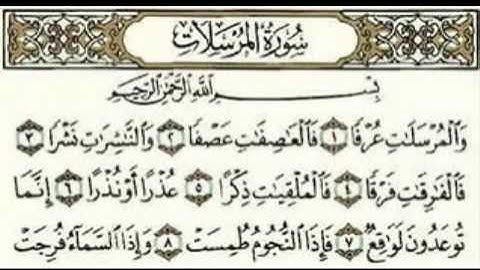 سُورَةُ الْمُرْسَلَاتِ
بِسْمِ اللَّهِ الرَّحْمَٰنِ الرَّحِيمِ
وَالْمُرْسَلَاتِ عُرْفًا ١ فَالْعَاصِفَاتِ عَصْفًا ٢ وَالنَّاشِرَاتِ نَشْرًا ٣
فَالْفَارِقَاتِ فَرْقًا ٤ فَالْمُلْقِيَاتِ ذِكْرًا ٥ عُذْرًا أَوْ نُذْرًا ٦ إِنَّمَا
تُوعَدُونَ لَوَاقِعٌ ٧ فَإِذَا النُّجُومُ طُمِسَتْ ٨ وَإِذَا السَّمَاءُ فُرِجَتْ